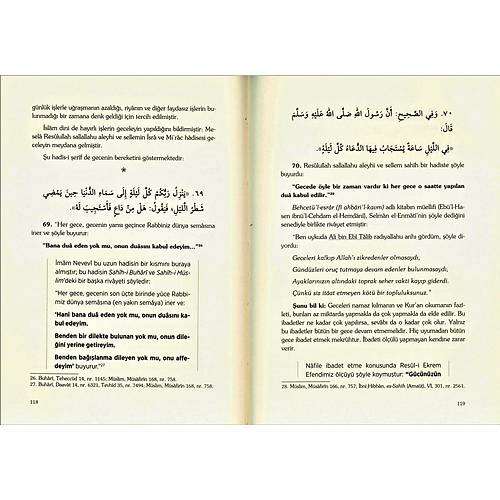 günlük işlerle uğraşmanın azaldığı, riyânın ve diğer faydasız işlerin bu-
lunmadığı bir zamana denk geldiği için tercih edilmiştir.
İslâm dini de hayırlı işlerin geceleyin yapıldığını bildirmiştir: Me-
selâ Resûlullah sallallahu aleyhi ve sellemin İsrâ ve Mi'râc hâdisesi ge-
celeyin meydana gelmiştir.
Şu hadis-i şerif de gecenin bereketini göstermektedir:
*
٦٩. «يَنْزِلُ رَبُّكُمْ كُلَّ لَيْلَةٍ إِلَى سَمَاءِ الدُّنْيَا حِينَ يَمْضِي
شَطْرُ اللَّيْلِ، فَيَقُولُ: هَلْ مِنْ دَاعٍ فَأَسْتَجِيبَ لَهُ».
69. "Her gece, gecenin yarısı geçince Rabbiniz dünya semâsına
iner ve şöyle buyurur:
"Bana dua eden yok mu, onun duâsını kabul edeyim..."26
İmâm Nevevî bu uzun hadisin bir kısmını buraya
almıştır; bu hadisin Sahîh-i Buhârî ve Sahîh-i Müs-
lim'deki bir başka rivâyeti şöyledir:
"Her gece, gecenin son üçte birinde yüce Rabbi-
miz dünya semâsına (en yakın semâya) iner ve:
"Hani bana duâ eden yok mu, onun duâsını ka-
bul edeyim.
Benden bir dilekte bulunan yok mu, onun dile-
ğini yerine getireyim.
Benden bağışlanma dileyen yok mu, onu affe-
deyim" buyurur."27
26. Buhârî, Teheccüd 14, nr. 1145; Müslim, Müsâfirîn 168, nr. 758.
27. Buhârî, Daavât 14, nr. 6321, Tevhîd 35, nr. 7494; Müslim, Müsâfirîn 168, nr. 758.
118
٧٠. وَفِي الصَّحِيحِ: أَنَّ رَسُولَ اللهِ صَلَّى اللهُ عَلَيْهِ وَسَلَّمَ
قَالَ:
«فِي اللَّيْلِ سَاعَةٌ يُسْتَجَابُ فِيهَا الدُّعَاءُ كُلَّ لَيْلَةٍ».
70. Resûlullah sallallahu aleyhi ve sellem sahih bir hadiste şöyle
buyurdu:
"Gecede öyle bir zaman vardır ki her gece o saatte yapılan
duâ kabul edilir."28
Behcetü'l-esrâr (fî ahbâri'l-kavm) adlı kitabın müellifi (Ebü'l-Ha-
sen ibnü'l-Cehdam el-Hemdânî), Selmân el-Enmâtî'nin şöyle dediğini
senediyle birlikte rivâyet etmiştir:
"Ben uykuda Ali bin Ebî Tâlib radıyallahu anhı gördüm, şöyle di-
yordu:
Geceleri kalkıp Allah'ı zikredenler olmasaydı,
Gündüzleri oruç tutmaya devam edenler bulunmasaydı,
Ayaklarınızın altındaki toprak seher vakti kayıp giderdi.
Çünkü siz itaat etmeyen kötü bir topluluksunuz."
Şunu bil ki: Geceleri namaz kılmanın ve Kur'an okumanın fazî-
leti, bunları az miktarda yapmakla da çok yapmakla da elde edilir. Bu
ibadetler ne kadar çok yapılırsa, sevâbı da o kadar çok olur. Yalnız
bu ibadetler bütün bir gece devam etmemelidir. Hiç uyumadan bütün
gece ibadet etmek mekrûhtur. İbadeti ölçülü yapmayan kendine zarar
verir.
Nâfile ibadet etme konusunda Resûl-i Ekrem
Efendimiz ölçüyü şöyle koymuştur: "Gücünüzün
28. Müslim, Müsâfirîn 166, nr. 757, İbni Hibbân, es-Sahîh (Arnaût), VI, 301, nr. 2561.
119